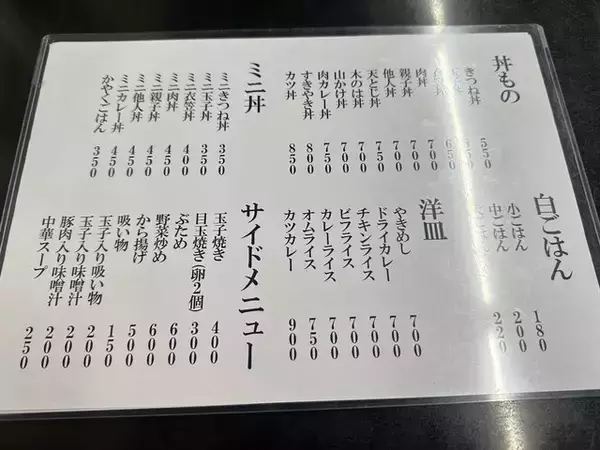 丼もの
きつね丼 550
650
肉丼 700
親子丼 700
他人丼 700
天とじ丼 750
木のは丼 700
山かけ丼 700
肉カレー丼 750
すきやき丼 800
カツ丼 850
ミニ丼
ミニきつね丼 350
ミニ玉子丼 350
ミニ衣笠丼 400
ミニ肉丼 450
ミニ親子丼 450
ミニ他人丼 450
ミニカレー丼 450
かやくごはん 350
白ごはん
小ごはん 180
中ごはん 200
ごはん 220
洋皿
やきめし 700
ドライカレー 700
チキンライス 700
ビフライス 700
カレーライス 700
オムライス 750
カツカレー 900
サイドメニュー
玉子焼き 400
目玉焼き(卵2個) 300
ぶため 600
野菜炒め 600
から揚げ 500
吸い物 150
玉子入り吸い物 200
玉子入り味噌汁 200
豚肉入り味噌汁 200
中華スープ 250